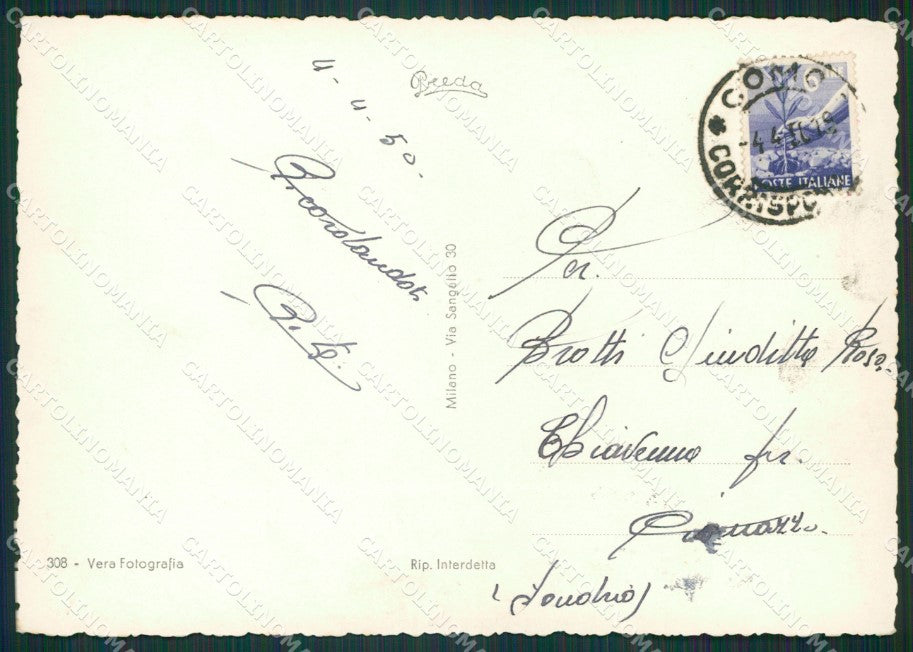 4-4-50-
Breda
Ricordandoti
COMO
-4.4
CORRISPO
6
POSTE ITALIANE
Milano - Via Sangallo 30
Per.
Brotti Giuditta Rosa.
Chiavenna fr.
(Sondrio)
308 - Vera Fotografia
Rip. Interdetta
CARTOLINOMANIA